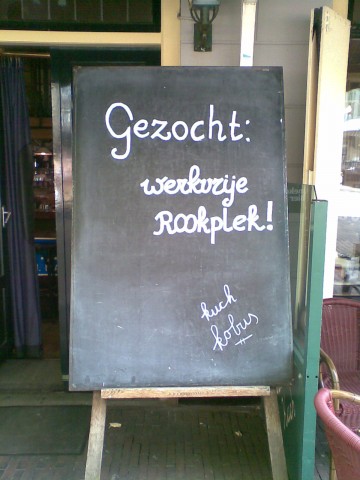 Gezocht:
werkvrije
Rookplek!
kuch
kobus